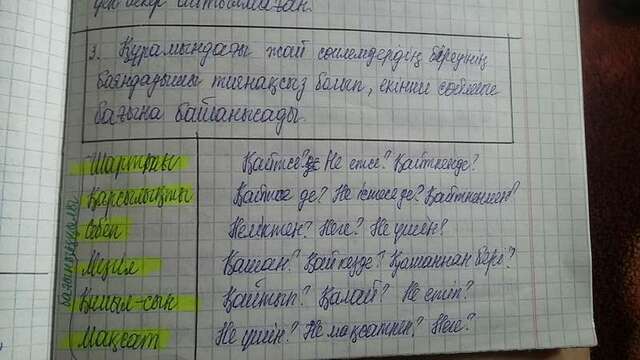 3. Құрамындағы жай сөйлемдердің біреуінің
баяндауышы тиянақсыз болып, екінші сөйлемге
бағына байланысады.
бағыныңқылы
Шартты Қайтсе? Не етсе? Қайткенде?
Қарсылықты Қайтсе де? Не істесе де? Қайткенмен?
Себеп Неліктен? Неге? Не үшін?
Мезгіл Қашан? Қай кезде? Қашаннан бері?
Қимыл-сын Қайтіп? Қалай? Не етіп?
Мақсат Не үшін? Не мақсатпен? Неге?